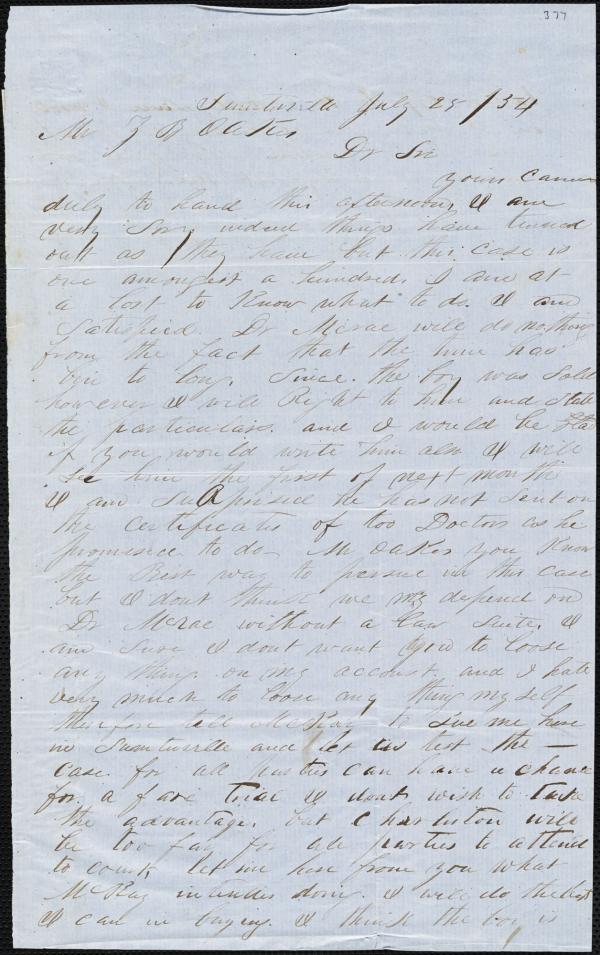 377
Sumterville July 28 / 54
Mr Z B Oakes
Dr Sir
yours came
duly to hand this afternoon, I am
very Sory indeed things have turned
out as they have but this case is
one amongest a hundred. I am at
a lost to Know what to do. I am
Satisfied Dr Mcrae will do nothing
from the fact that the time has
bin to long, Since the boy was Sold
however I will Right to him and State
the particulars. and I would be
if you would write him also I will
See him the first of next month
I am Surprised he has not Sent on
the certificates of too Doctors as he
promised to do. Mr Oakes you Know
the Best way to persue in this case
but I dont think we may depend on
Dr Mcrae without a law Suite, I
am Sure I dont want you to loose
any thing on my account, and I hate
very much to loose any thing my self
therefore tell McKay to Sue me here
in Sumterville and let us test the —
case. for all parties can have a chance
for a fare trial I dont wish to take
the advantage, but Charleston will
be too far for all parties to attend
to court, let me hear from you what
McKay intends doing. I will do the best
I can in buying. I think the boy is